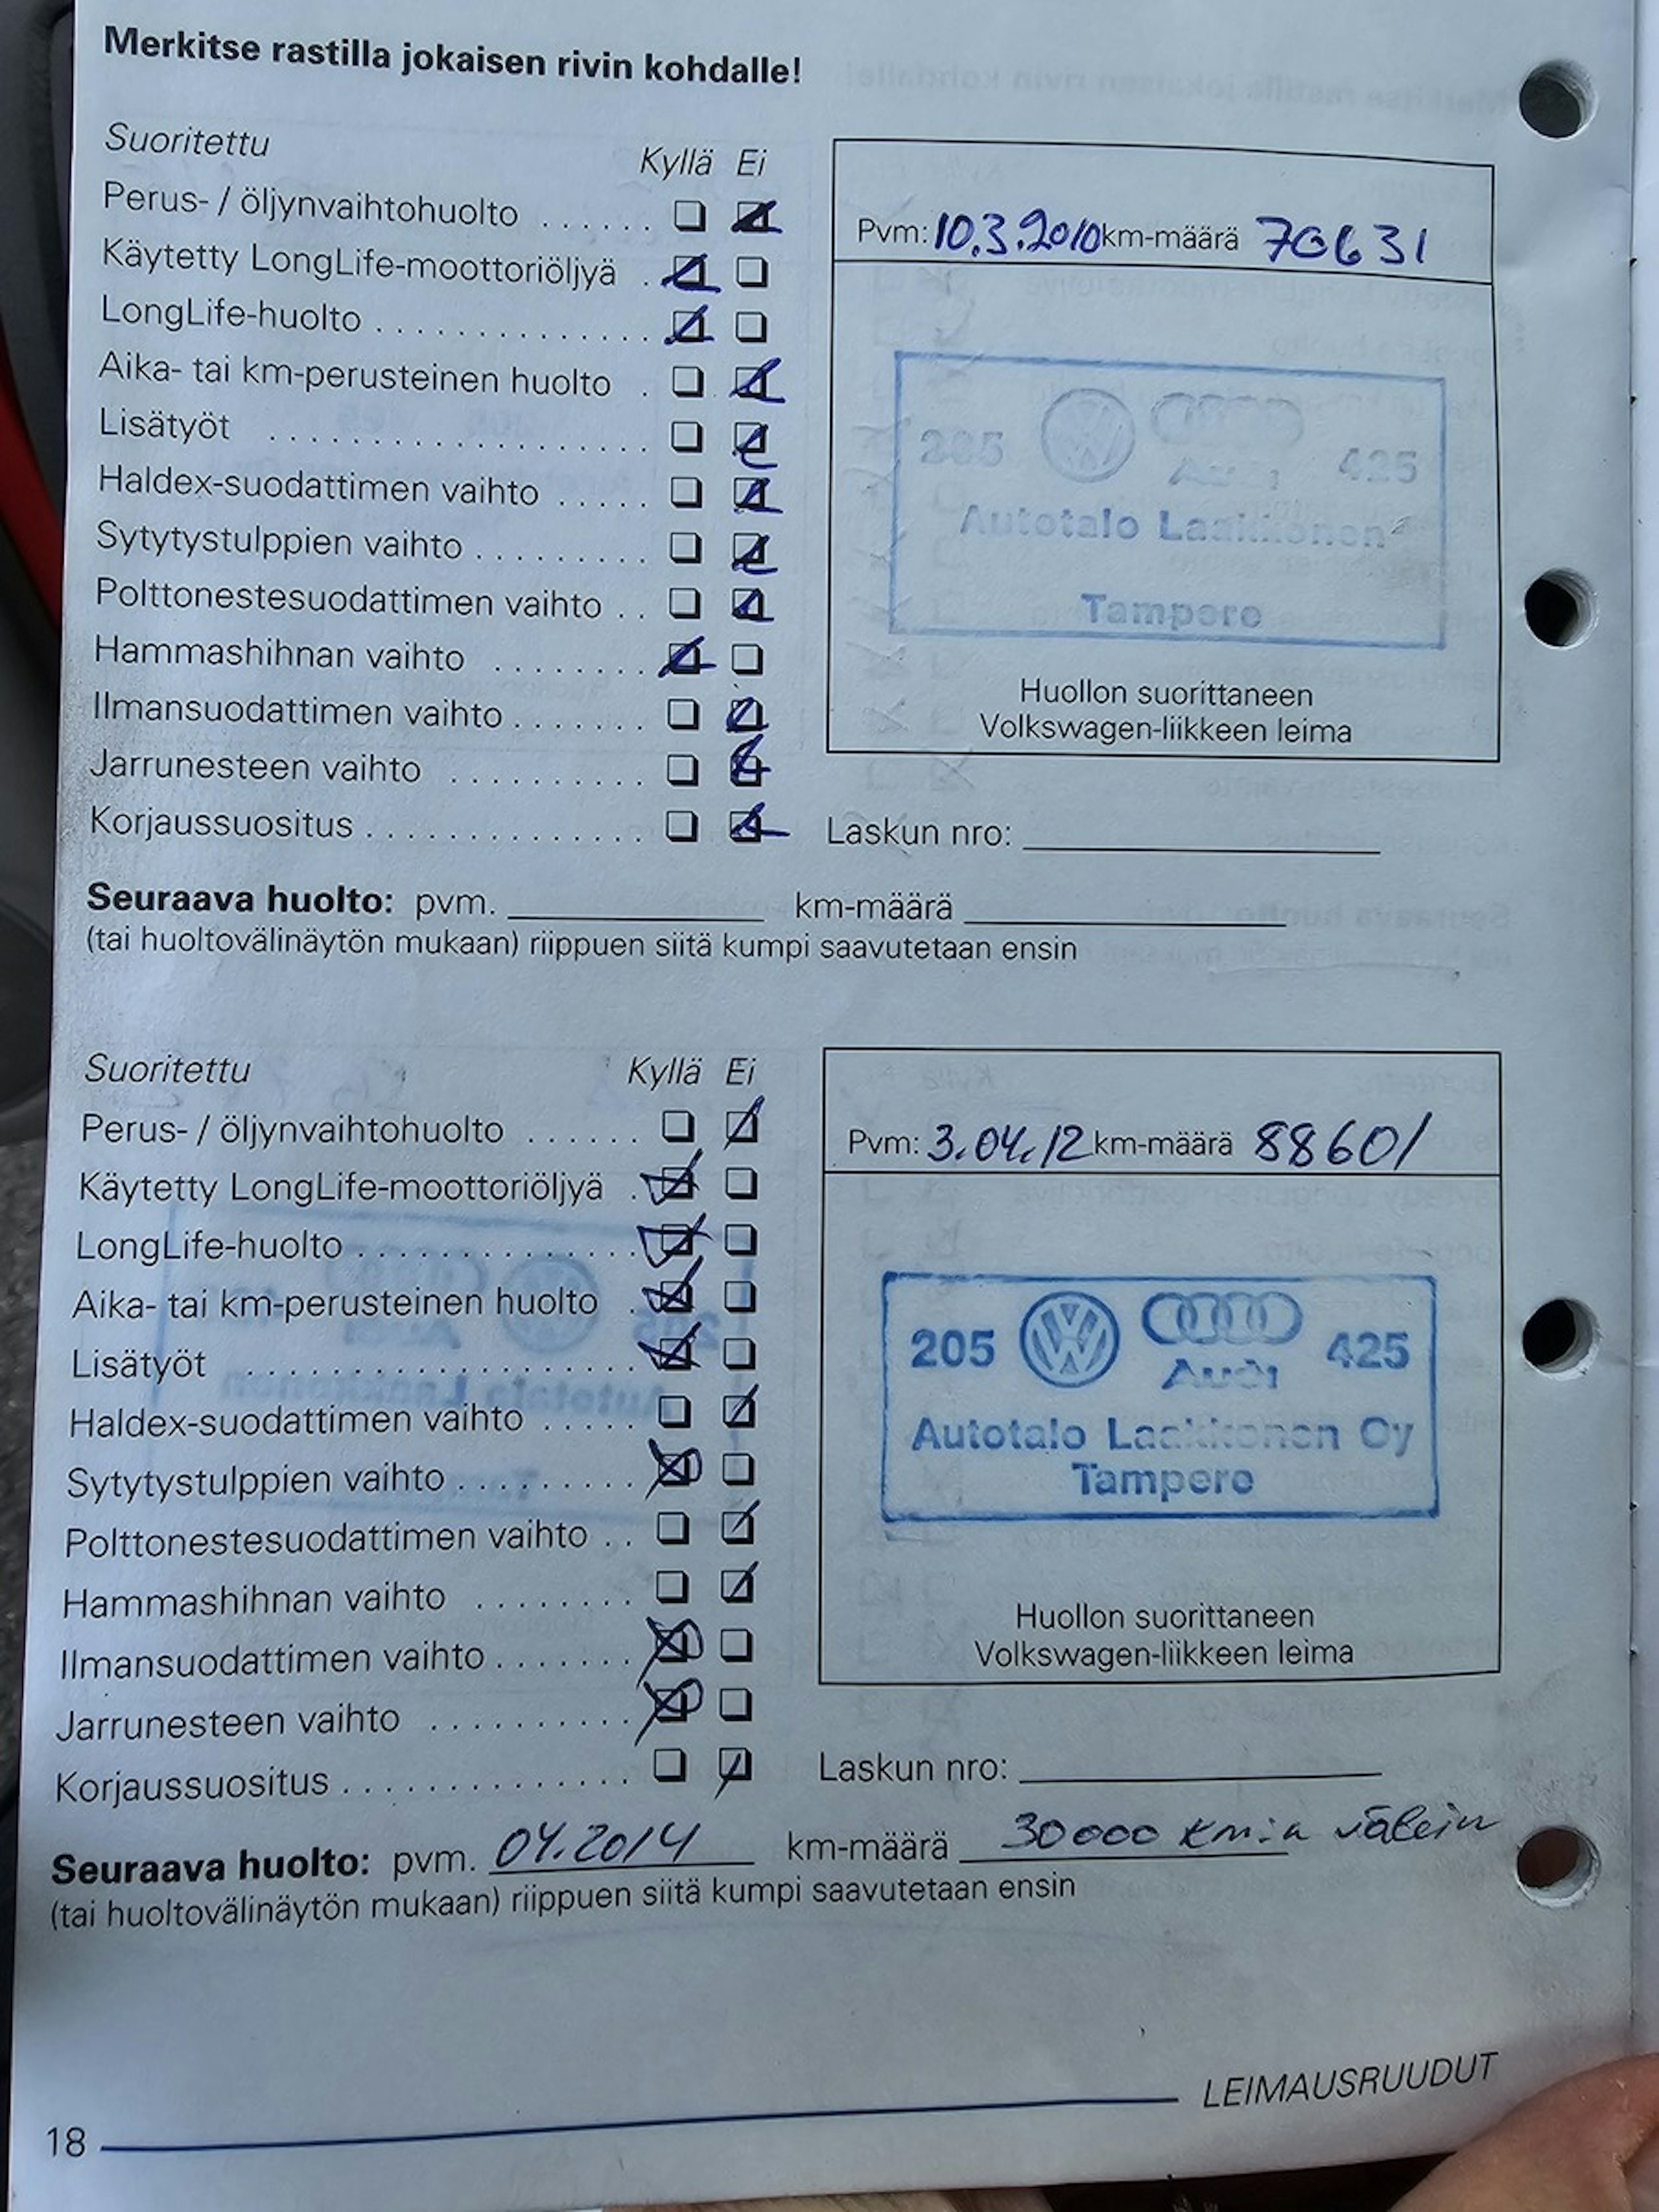 Merkitse rastilla jokaisen rivin kohdalle!
Suoritettu Kyllä Ei
Perus- / öljynvaihtohuolto . . . . . .
Käytetty LongLife-moottoriöljyä .
LongLife-huolto . . . . . . . . . . . . . . .
Aika- tai km-perusteinen huolto .
Lisätyöt . . . . . . . . . . . . . . . . . . .
Haldex-suodattimen vaihto . . . . .
Sytytystulppien vaihto . . . . . . . . .
Polttonestesuodattimen vaihto . .
Hammashihnan vaihto . . . . . . . .
Ilmansuodattimen vaihto . . . . . . .
Jarrunesteen vaihto . . . . . . . . . .
Korjaussuositus . . . . . . . . . . . . . .
Pvm: 10.3.2010 km-määrä 70631
205 Audi 425
Autotalo Laakkonen
Tampere
Huollon suorittaneen
Volkswagen-liikkeen leima
Laskun nro:
Seuraava huolto: pvm. km-määrä
(tai huoltovälinäytön mukaan) riippuen siitä kumpi saavutetaan ensin
Suoritettu Kyllä Ei
Perus- / öljynvaihtohuolto . . . . . .
Käytetty LongLife-moottoriöljyä .
LongLife-huolto . . . . . . . . . . . . . .
Aika- tai km-perusteinen huolto .
Lisätyöt . . . . . . . . . . . . . . . . . . .
Haldex-suodattimen vaihto . . . . .
Sytytystulppien vaihto . . . . . . . . .
Polttonestesuodattimen vaihto . .
Hammashihnan vaihto . . . . . . . .
Ilmansuodattimen vaihto . . . . . . .
Jarrunesteen vaihto . . . . . . . . . .
Korjaussuositus . . . . . . . . . . . . . .
Pvm: 3.04.12 km-määrä 88601
205 Audi 425
Autotalo Laakkonen Oy
Tampere
Huollon suorittaneen
Volkswagen-liikkeen leima
Laskun nro:
Seuraava huolto: pvm. 04.2014 km-määrä 30000 km:n välein
(tai huoltovälinäytön mukaan) riippuen siitä kumpi saavutetaan ensin
LEIMAUSRUUDUT
18